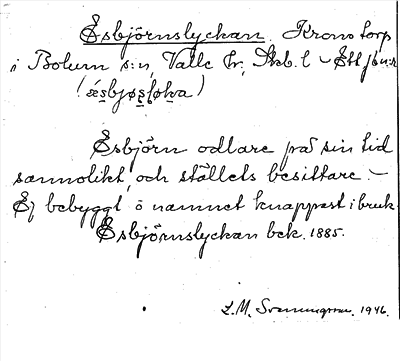 Esbjörnslyckan. Kronotorp
i Bolum s:n, Valle hr, Skb. l - Ett jb n:r
(æsbjøsløka)
Esbjörn odlare på sin tid
sannolikt, och ställets besittare. -
Ej bebyggt o namnet knappast i bruk.
Esbjörnslyckan bek. 1885.
L. M. Svenungsson. 1946.